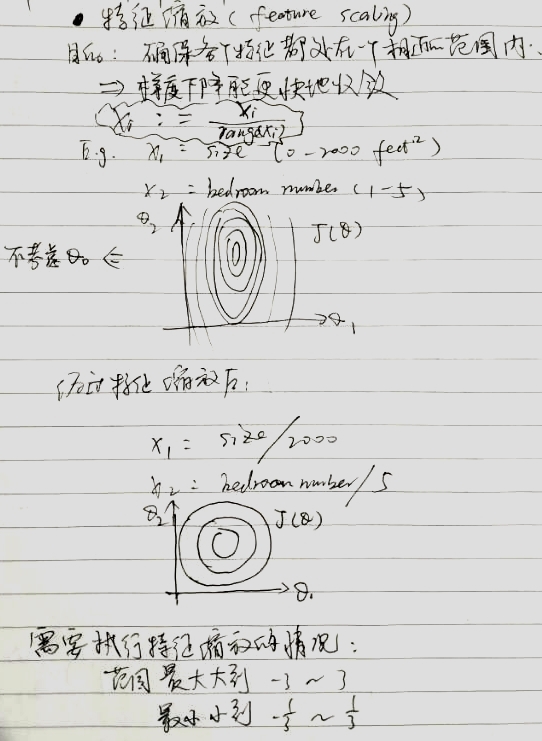 • 特征缩放 (feature scaling)
目的: 确保各个特征都处在一个相近范围内.
⇒ 梯度下降能更快地收敛
xi := xi / range(xi)
E.g. x₁ = size (0-2000 feet²)
x₂ = bedroom number (1-5)
θ₂ J(θ)
不考虑θ₀ ⇐
θ₁
经过特征缩放后:
x₁ = size/2000
x₂ = bedroom number/5
θ₂ J(θ)
θ₁
需要执行特征缩放的情况:
范围最大大到 -3 ~ 3
最小小到 -1/3 ~ 1/3